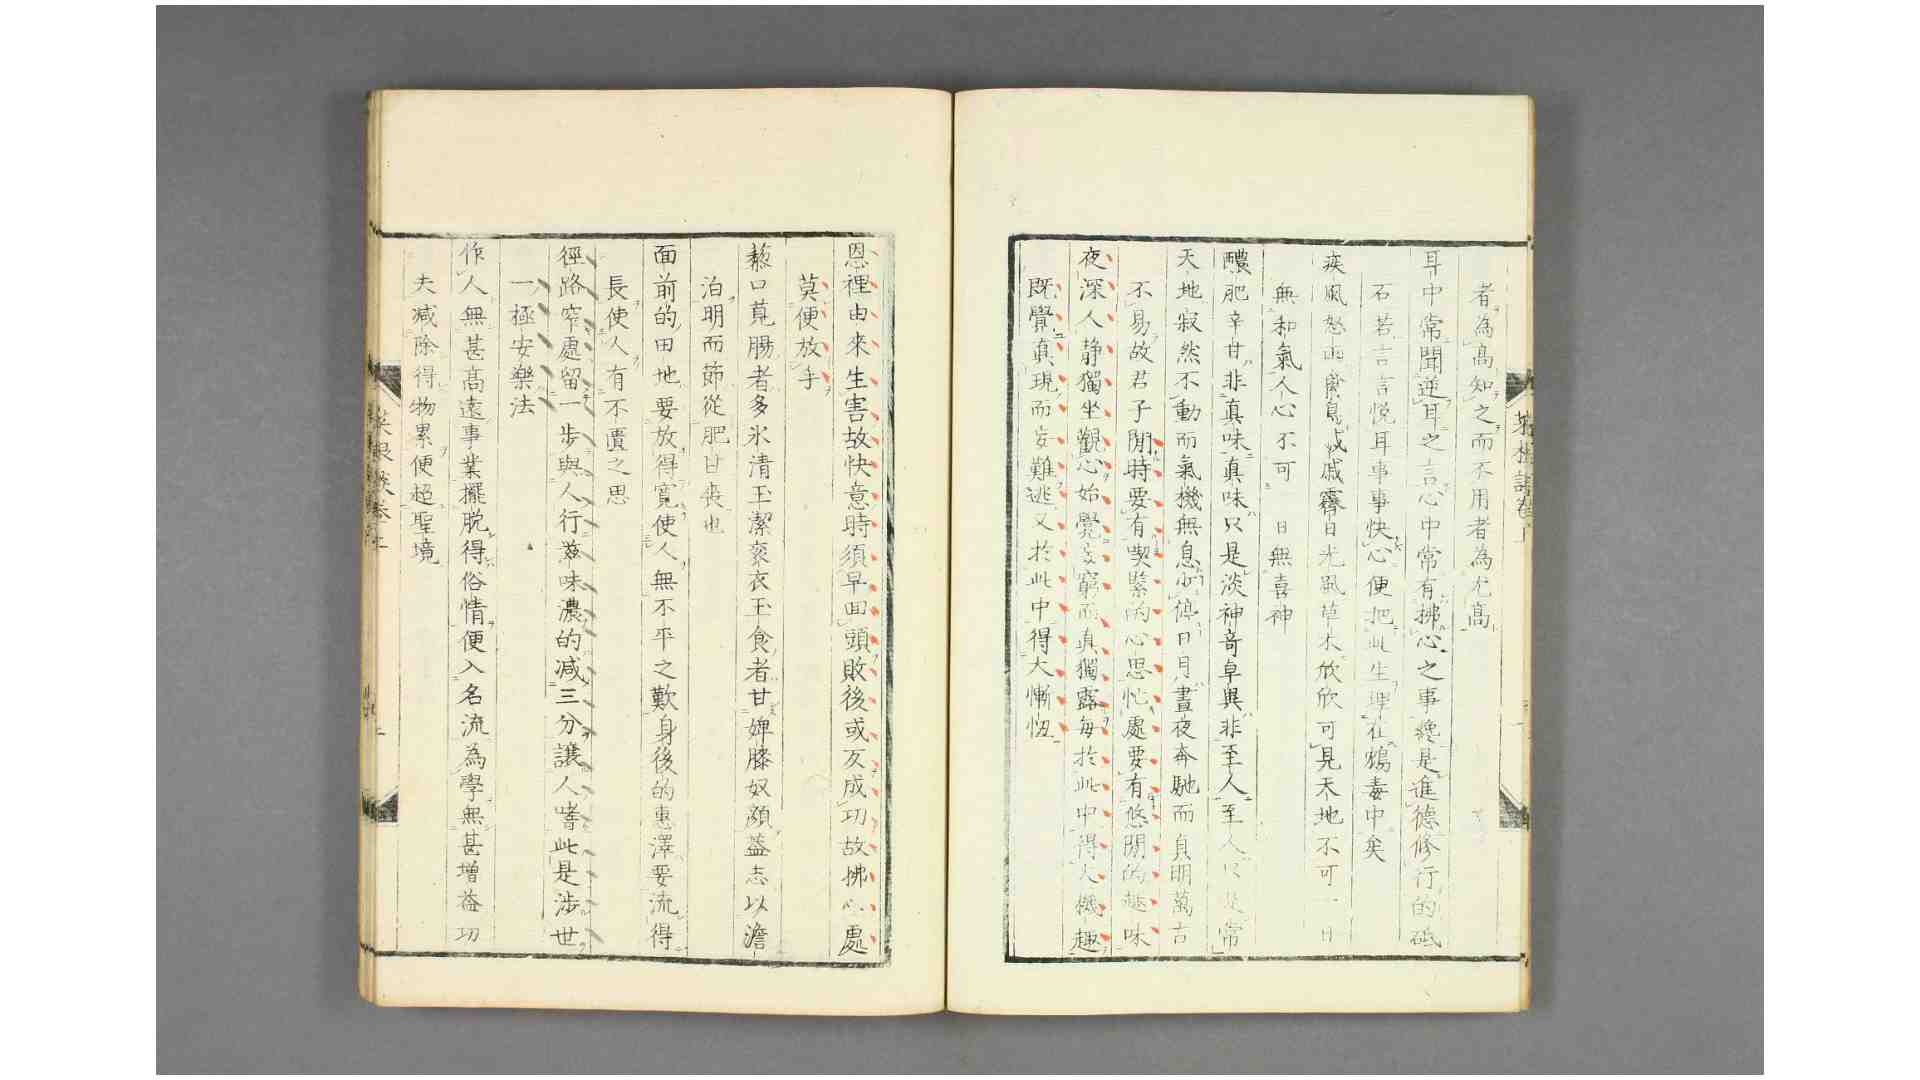 者為高知之而不用者為尤高
耳中常聞逆耳之言心中常有拂心之事纔是進德修行的砥
石若言言悦耳事事快心便把此生埋在鴆毒中矣
疾風怒雨禽鳥戚戚霽日光風草木欣欣可見天地不可一日
無和氣人心不可一日無喜神
醲肥辛甘非真味真味只是淡神奇卓異非至人至人只是常
天地寂然不動而氣機無息少停日月晝夜奔馳而貞明萬古
不易故君子閒時要有喫緊的心思忙處要有悠閒的趣味
夜深人静獨坐觀心始覺妄窮而真獨露每於此中得大機趣
既覺真現而妄難逃又於此中得大慚忸
恩裡由來生害故快意時須早回頭敗後或反成功故拂心處
莫便放手
藜口莧腸者多氷清玉潔袞衣玉食者甘婢膝奴顔葢志以澹
泊明而節從肥甘喪也
面前的田地要放得寛使人無不平之歎身後的惠澤要流得
長使人有不匱之思
徑路窄處留一步與人行滋味濃的减三分讓人嗜此是涉世
一極安樂法
作人無甚高遠事業擺脱得俗情便入名流為學無甚增益功
夫减除得物累便超聖境
菜根談卷上